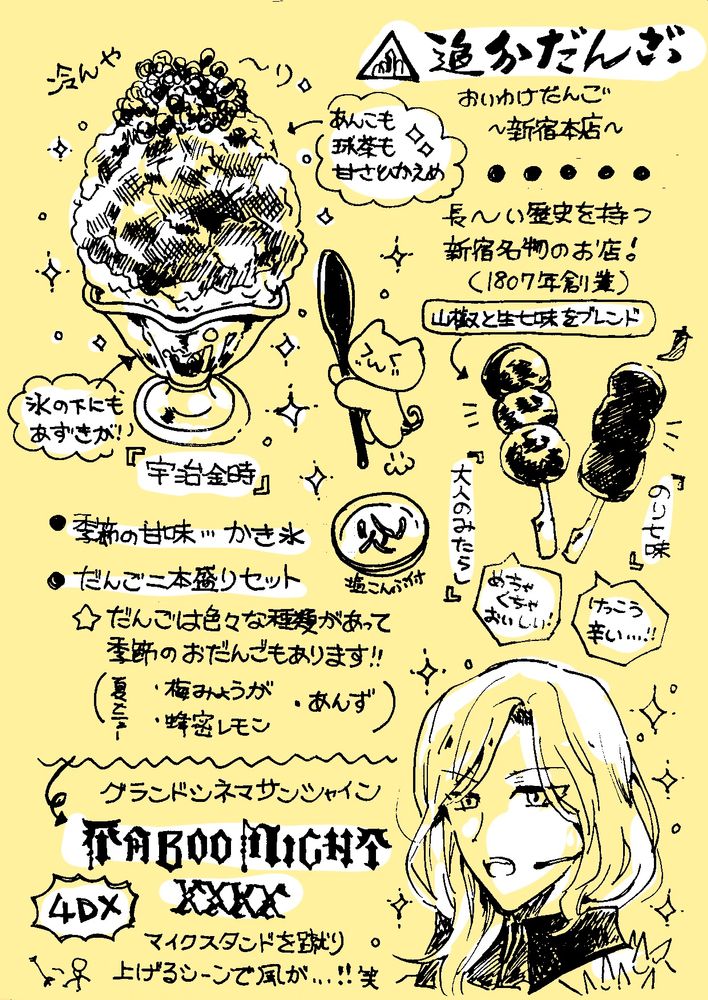 追分だんご
おいわけだんご
～新宿本店～
冷んや～り
あんこも
抹茶も
甘さひかえめ
長～い歴史を持つ
新宿名物のお店！
（1807年創業）
山椒と生七味をブレンド
氷の下にも
あずきが！
『宇治金時』
『大人のみたらし』
のり七味』
めちゃ
くちゃ
おいしい！
けっこう
辛い…!!
塩こんぶ付
●季節の甘味…かき氷
●だんご二本盛りセット
☆だんごは色々な種類があって
季節のおだんごもあります!!
夏メニュー
・梅みょうが ・あんず
・蜂蜜レモン
グランドシネマサンシャイン
TABOO NIGHT
XXXX
4DX
マイクスタンドを蹴り
上げるシーンで風が…!!笑